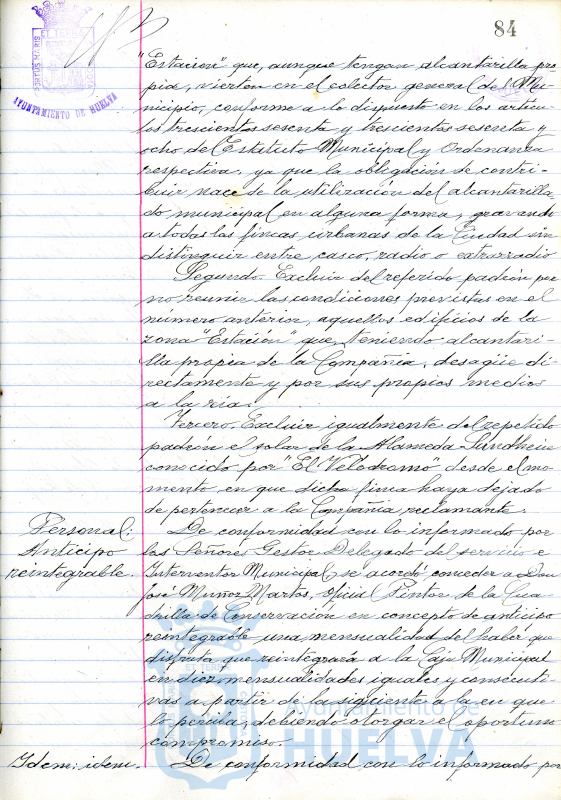 84
PORTUS MARIS
AYUNTAMIENTO DE HUELVA
"Estación" que, aunque tengan alcantarilla pro-
pia, vierten en el colector general del Mu-
nicipio, conforme a lo dispuesto en los artícu-
los trescientos sesenta y trescientos sesenta y
ocho del Estatuto Municipal y Ordenanza
respectiva, ya que la obligación de contri-
buir nace de la utilización del alcantarilla-
do municipal en alguna forma, gravando
a todas las fincas urbanas de la Ciudad sin
distinguir entre casco, radio o extrarradio
Segundo. Excluir del referido padrón por
no reunir las condiciones previstas en el
número anterior, aquellos edificios de la
zona "Estación" que, teniendo alcantari-
lla propia de la Compañía, desagüe di-
rectamente y por sus propios medios
a la ría.
Tercero. Excluir igualmente del repetido
padrón el solar de la Alameda Sundheim
conocido por "El Velódromo desde el mo-
mento en que dicha finca haya dejado
de pertenecer a la Compañía reclamante.
Personal:
Anticipo
reintegrable.
De conformidad con lo informado por
los Señores Gestor Delegado del servicio e
Interventor Municipal, se acordó conceder a Don
José Muñoz Martos, oficial Pintor de la Cua-
drilla de Conservación en concepto de anticipo
reintegrable una mensualidad del haber que
disfruta que reintegrará a la Caja Municipal
en diez mensualidades iguales y consecuti-
vas a partir de la siguiente a la en que
lo perciba, debiendo otorgar el oportuno
compromiso.
Idem: idem.
De conformidad con lo informado por
Ayuntamiento de
HUELVA